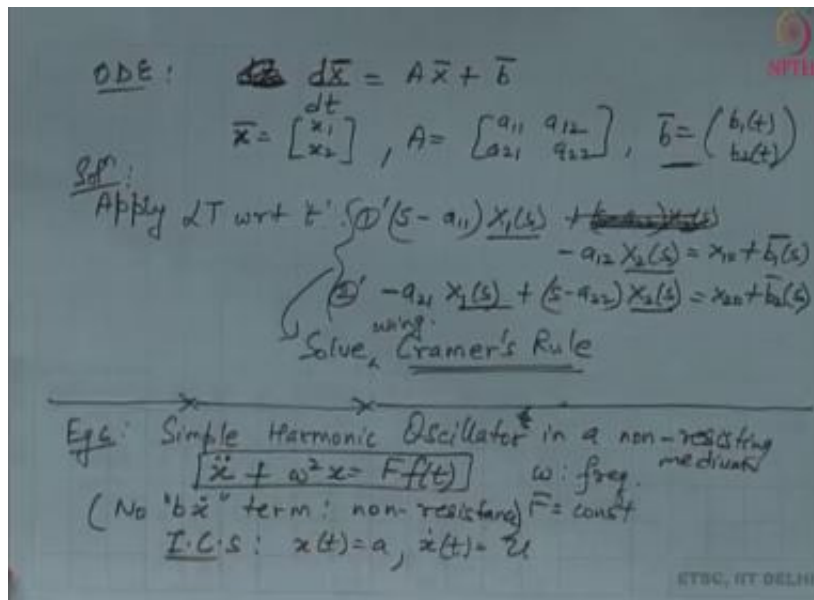 NPTEL
ODE: dx̄/dt = A x̄ + b̄
x̄ = [x₁ x₂], A = [a₁₁ a₁₂ a₂₁ a₂₂], b̄ = (b₁(t) b₂(t))
Solⁿ:
Apply LT wrt 't': ①' (s - a₁₁) X₁(s)
- a₁₂ X₂(s) = x₁₀ + b̄₁(s)
②' - a₂₁ X₁(s) + (s - a₂₂) X₂(s) = x₂₀ + b̄₂(s)
Solve using Cramer's Rule
Eg 6: Simple Harmonic Oscillator in a non-resisting medium
ẍ + ω²x = F f(t) ω: freq.
(No "bẋ" term: non-resistance) F = const
I.C.s: x(t) = a, ẋ(t) = u
ETSC, IIT DELHI